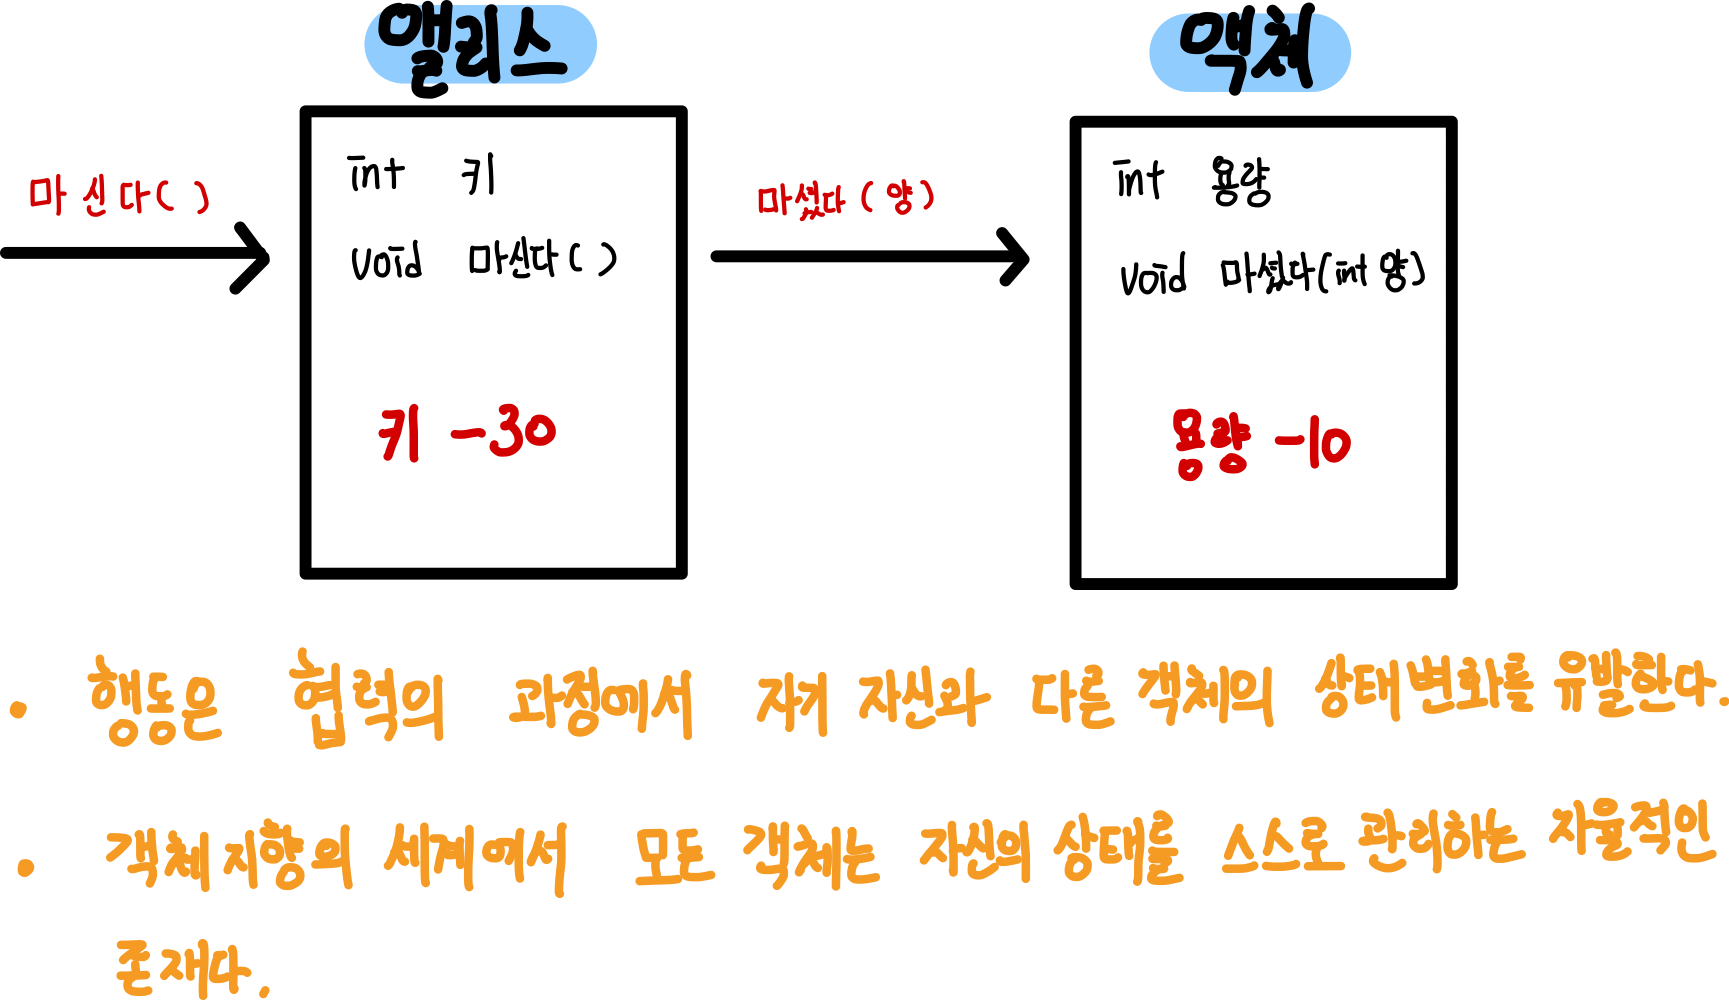 앨리스
액체
마신다()
int 키
void 마신다()
키 -30
마셨다(양)
int 용량
void 마셨다(int 양)
용량 -10
• 행동은 협력의 과정에서 자기 자신과 다른 객체의 상태변화를 유발한다.
• 객체지향의 세계에서 모든 객체는 자신의 상태를 스스로 관리하는 자율적인
존재다.